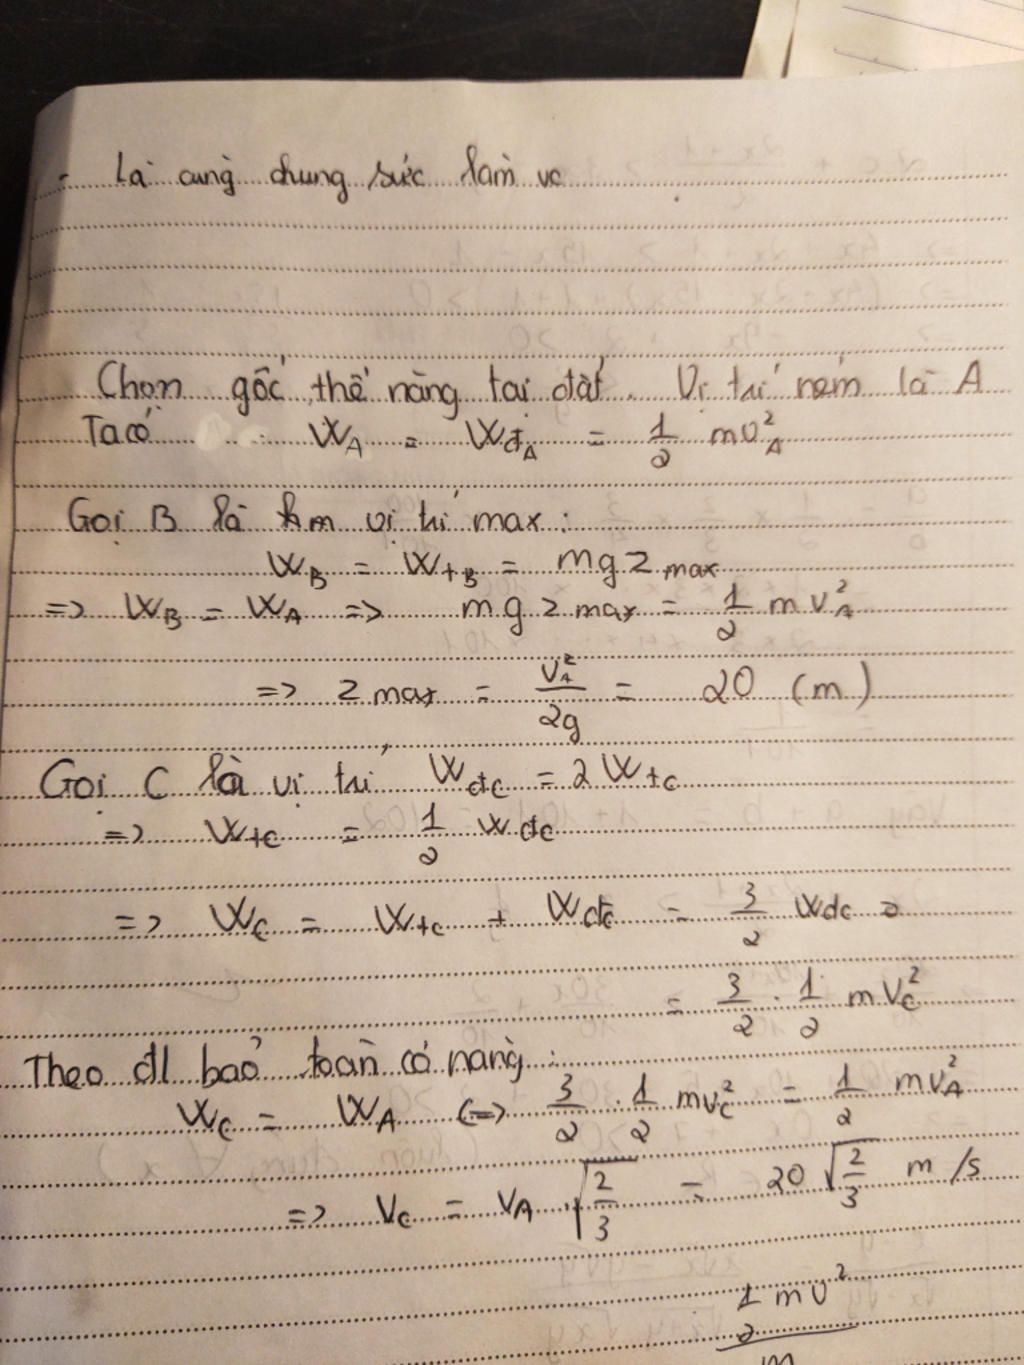 - Là cùng chung sức làm vc
Chọn gốc thế năng tại đất. Vị trí ném là A
Ta có W_A = W_đA = 1/2 mv_A^2
Gọi B là vị trí max:
W_B = W_tB = mg z max
=> W_B = W_A => mg z max = 1/2 m v_A^2
=> z max = v_A^2/2g = 20 (m)
Gọi C là vị trí W_đC = 2 W_tC
=> W_tC = 1/2 W_đC
=> W_C = W_tC + W_đC = 3/2 W_đC
= 3/2 . 1/2 m v_C^2
Theo đl bảo toàn cơ năng:
W_C = W_A <=> 3/2 . 1/2 mv_C^2 = 1/2 mv_A^2
=> v_C = v_A . √(2/3) = 20 √(2/3) m/s
1/2 mv^2
m